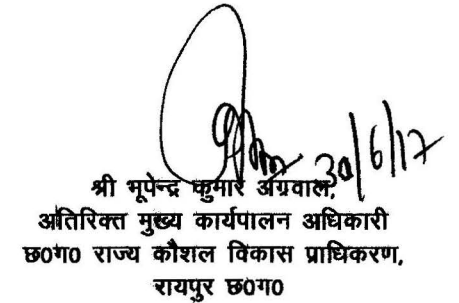 30/6/17
श्री भूपेन्द्र कुमार अग्रवाल,
अतिरिक्त मुख्य कार्यपालन अधिकारी
छ0ग0 राज्य कौशल विकास प्राधिकरण,
रायपुर छ0ग0